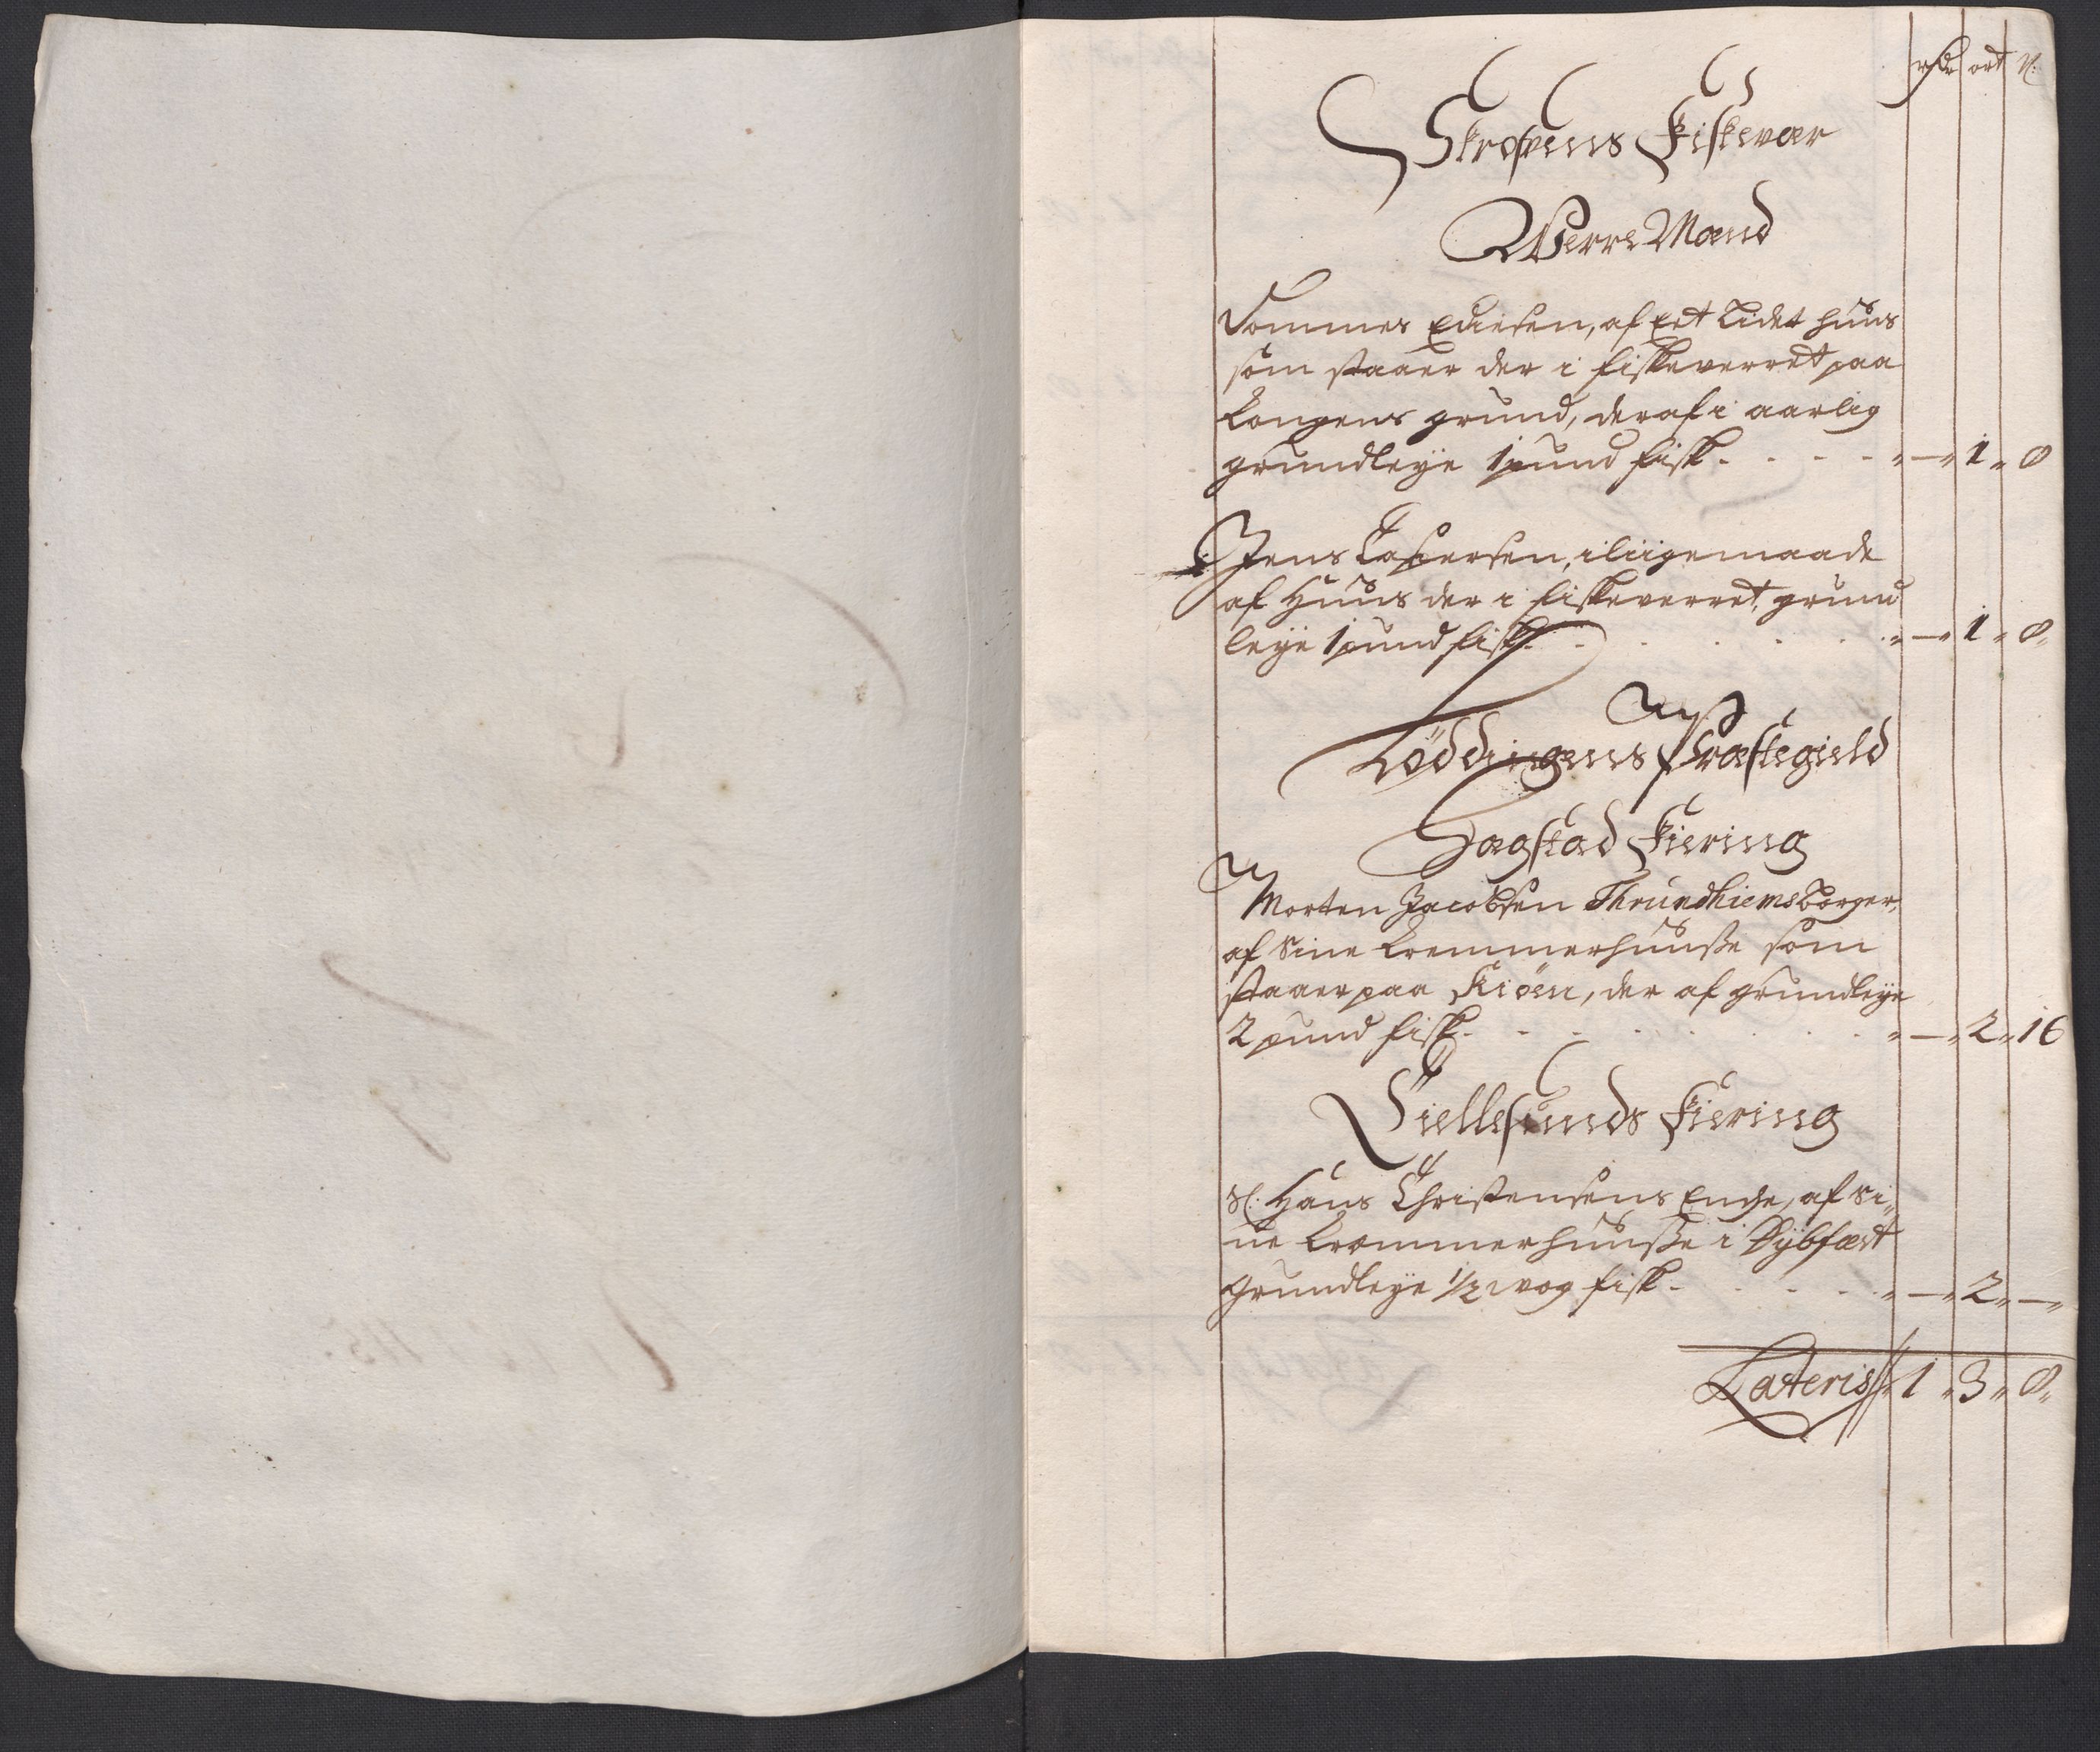 rdr ort s:
Skrofvens Fiskevær
Werre Mænd
Tommes Ediesen, af Eet Lidet huus
som staaer der i fiskeverret paa
Kongens grund, deraf i aarlig
grundleye 1 pund fisk - - - - „ — „ 1 „ 8
Jens Caspersen, i liigemaade
af Huus der i fiskeverret, grund
leye 1 pund fisk - . . . . „ — „ 1 „ 8 „
Löddingens Præstegield
Fiering
Morten Jacobsen Thrundhiems borger,
af Sine Kremmerhuusse som
staaer paa Kiöen, der af grundleye
2 pund fisk - - - . . . „ — „ 2 „ 16
Tiellesunds Fiering
Sl. Hans Christensens Enche, af Si„
ne Kræmmerhuusse i Dybfæst
Grundleye 1/2 wog fisk - . . . „ — „ 2 „ — „
Lateris „ 1 „ 3 „ 8 „